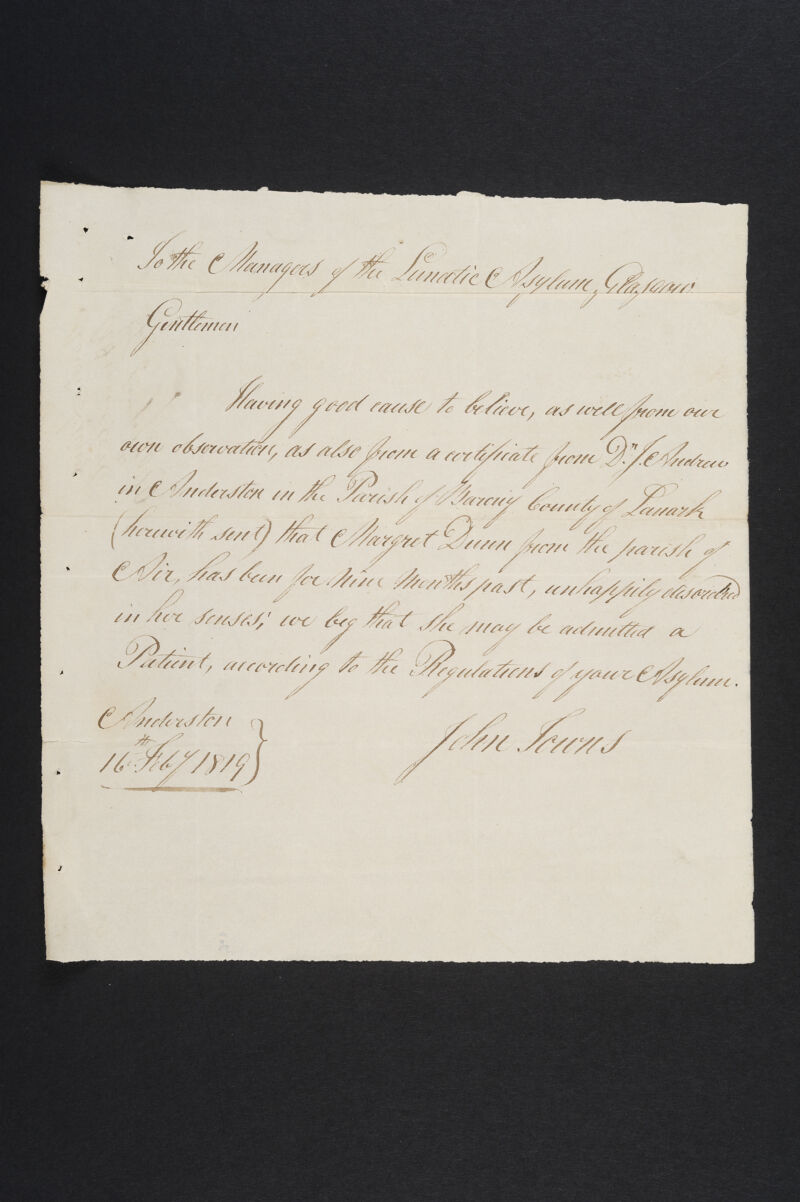 To the Managers of the Lunatic Asylum, Glasgow
Gentlemen
Having good cause to believe, as well from our
own observation, as also from a certificate from Dr. J. Andrew
in Anderston in the Parish of Barony County of Lanark
(herewith sent) that Margret Dunn from the parish of
Air, has been for Nine Months past, unhappily disordered
in her senses; we beg that she may be admitted a
Patient, according to the Regulations of your Asylum.
Anderston
16th Feby 1819
John Towns